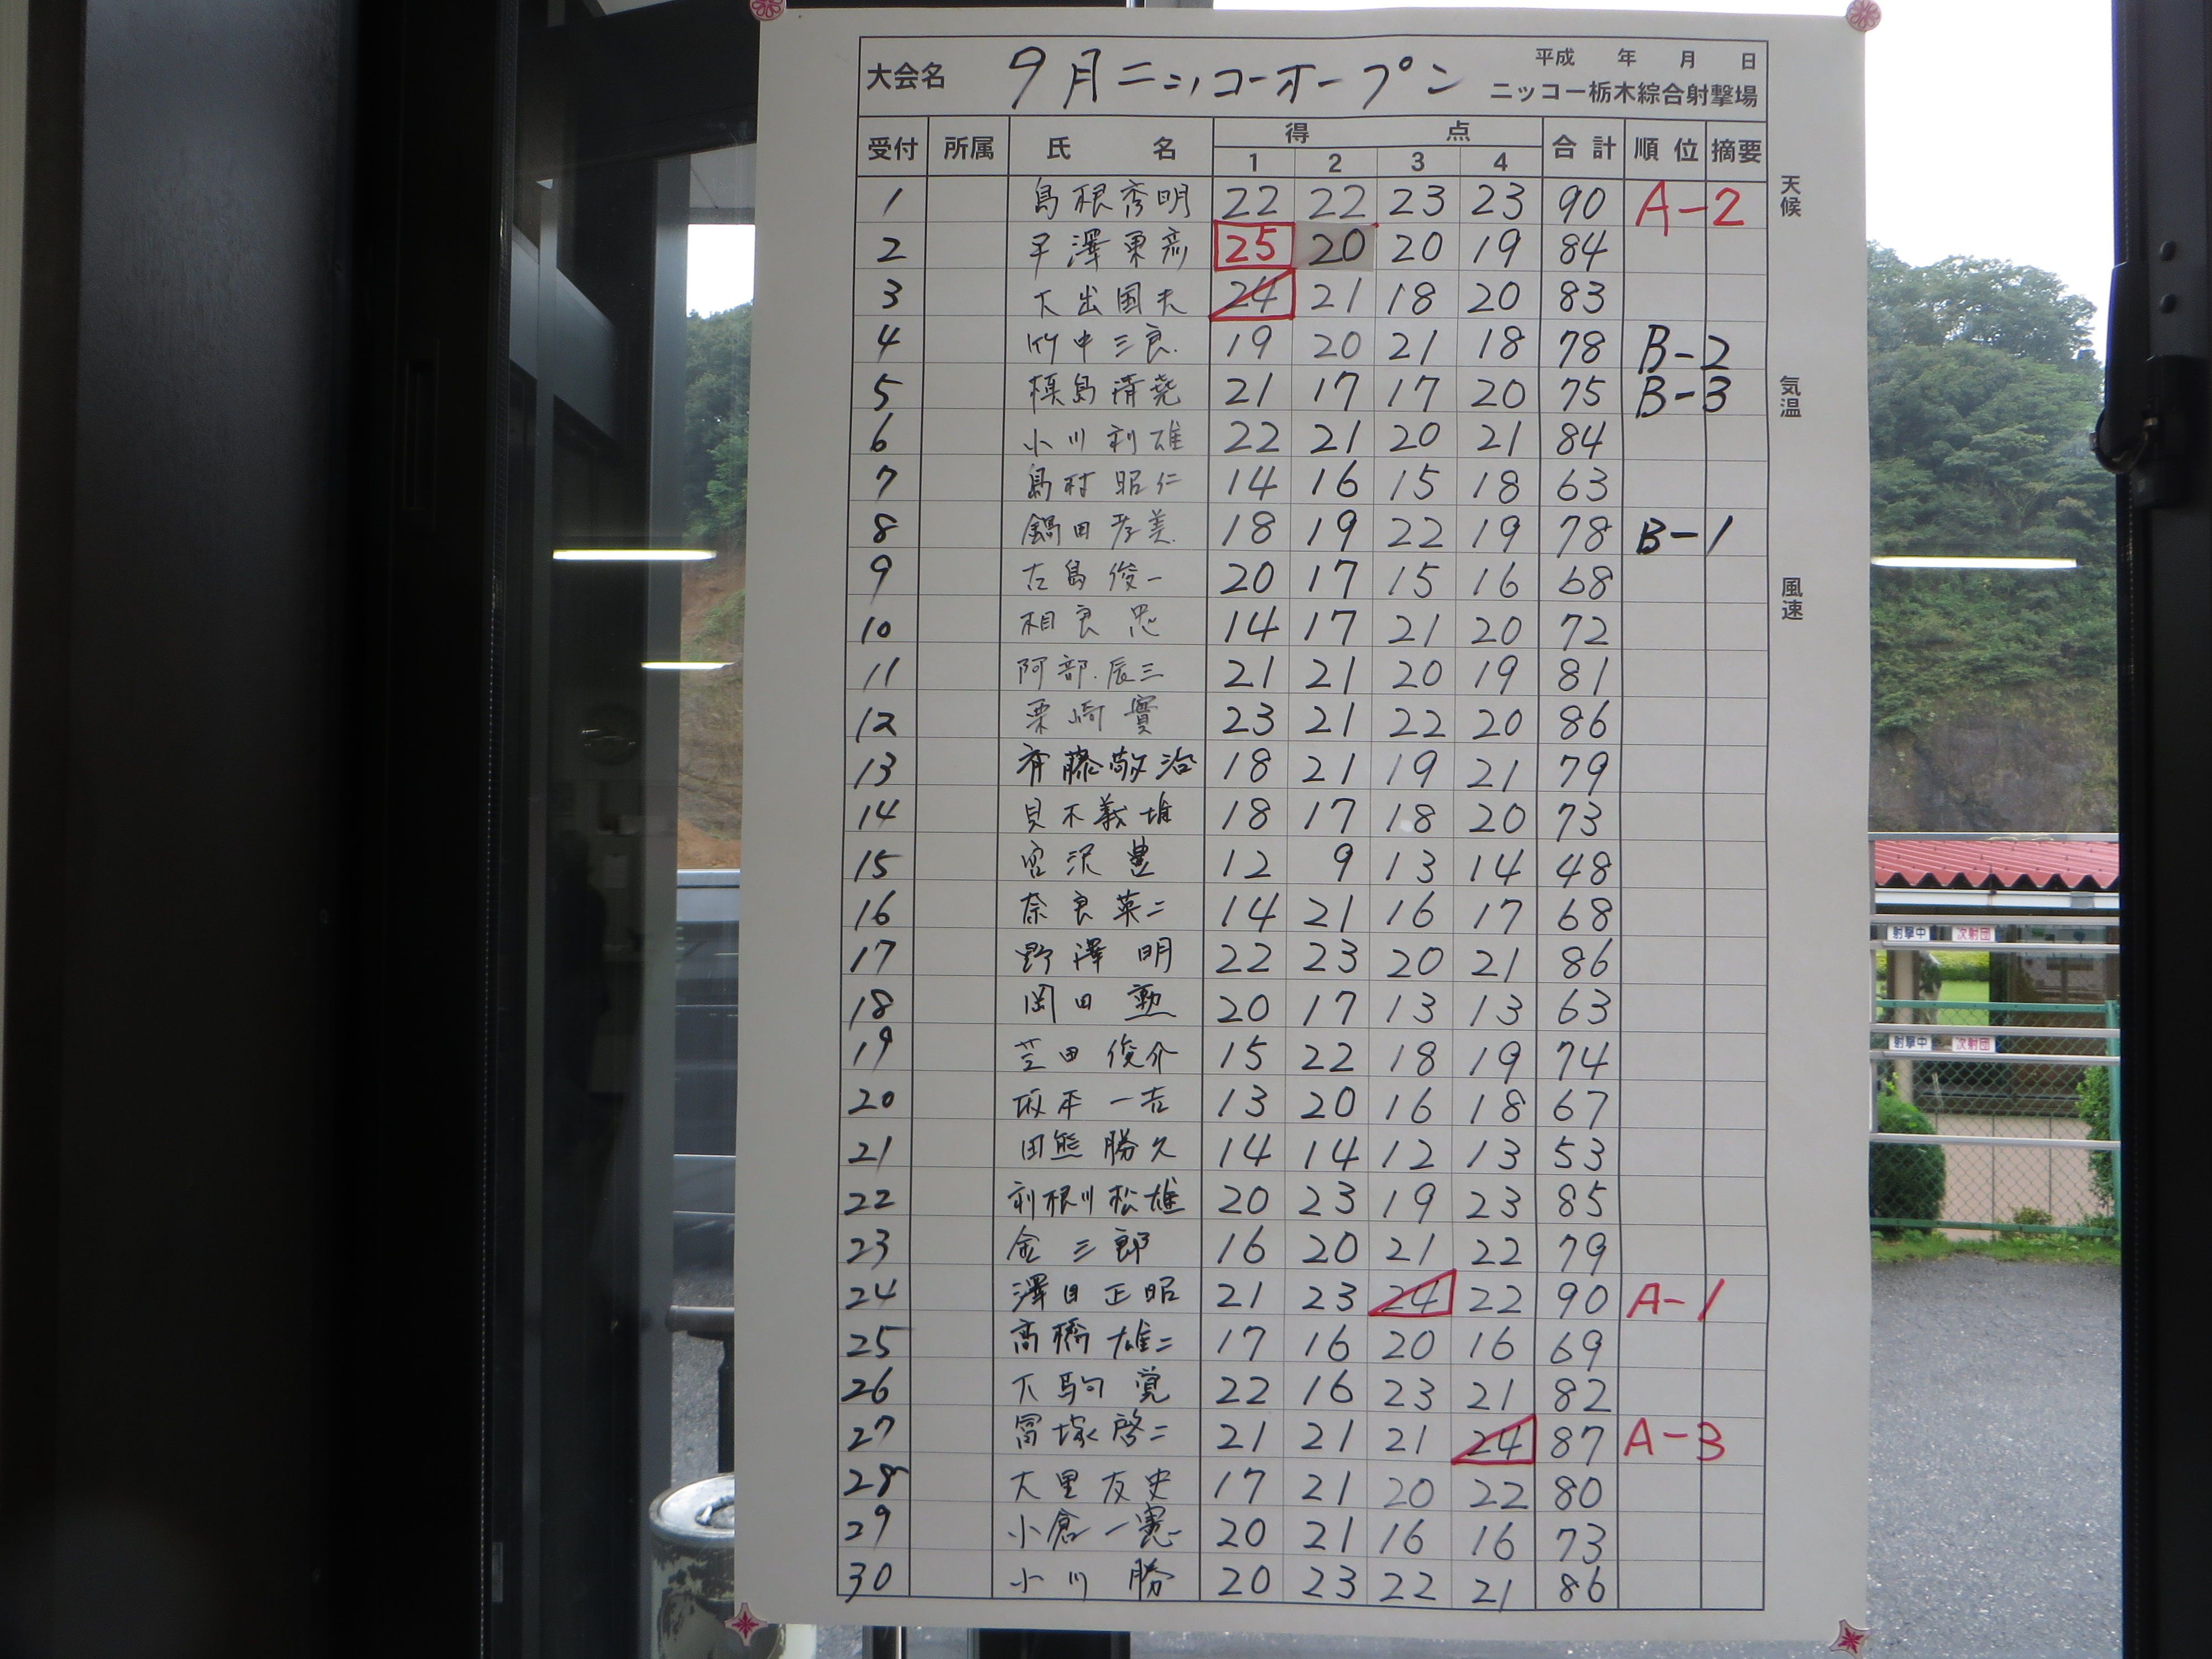 平成 年 月 日
大会名 9月ニッコーオープン ニッコー栃木綜合射撃場
受付 所属 氏名 得点 合計 順位 摘要
1 2 3 4
1 島根秀明 22 22 23 23 90 A-2
2 平澤東彦 25 20 20 19 84
3 大出国夫 24 21 18 20 83
4 竹中三良 19 20 21 18 78 B-2
5 槙島清尭 21 17 17 20 75 B-3
6 小川利雄 22 21 20 21 84
7 島村昭仁 14 16 15 18 63
8 鍋田孝美 18 19 22 19 78 B-1
9 古島俊一 20 17 15 16 68
10 相良忠 14 17 21 20 72
11 阿部辰三 21 21 20 19 81
12 栗崎實 23 21 22 20 86
13 斉藤敬治 18 21 19 21 79
14 貝木義雄 18 17 18 20 73
15 宮沢豊 12 9 13 14 48
16 奈良英二 14 21 16 17 68
17 野澤明 22 23 20 21 86
18 岡田勲 20 17 13 13 63
19 芝田俊介 15 22 18 19 74
20 坂本一吉 13 20 16 18 67
21 田熊勝久 14 14 12 13 53
22 利根川松雄 20 23 19 23 85
23 金三郎 16 20 21 22 79
24 澤田正昭 21 23 24 22 90 A-1
25 高橋雄二 17 16 20 16 69
26 大駒覚 22 16 23 21 82
27 冨塚啓二 21 21 21 24 87 A-3
28 大里友史 17 21 20 22 80
29 小倉一憲 20 21 16 16 73
30 小川勝 20 23 22 21 86
天候
気温
風速
射撃中 次射団
射撃中 次射団